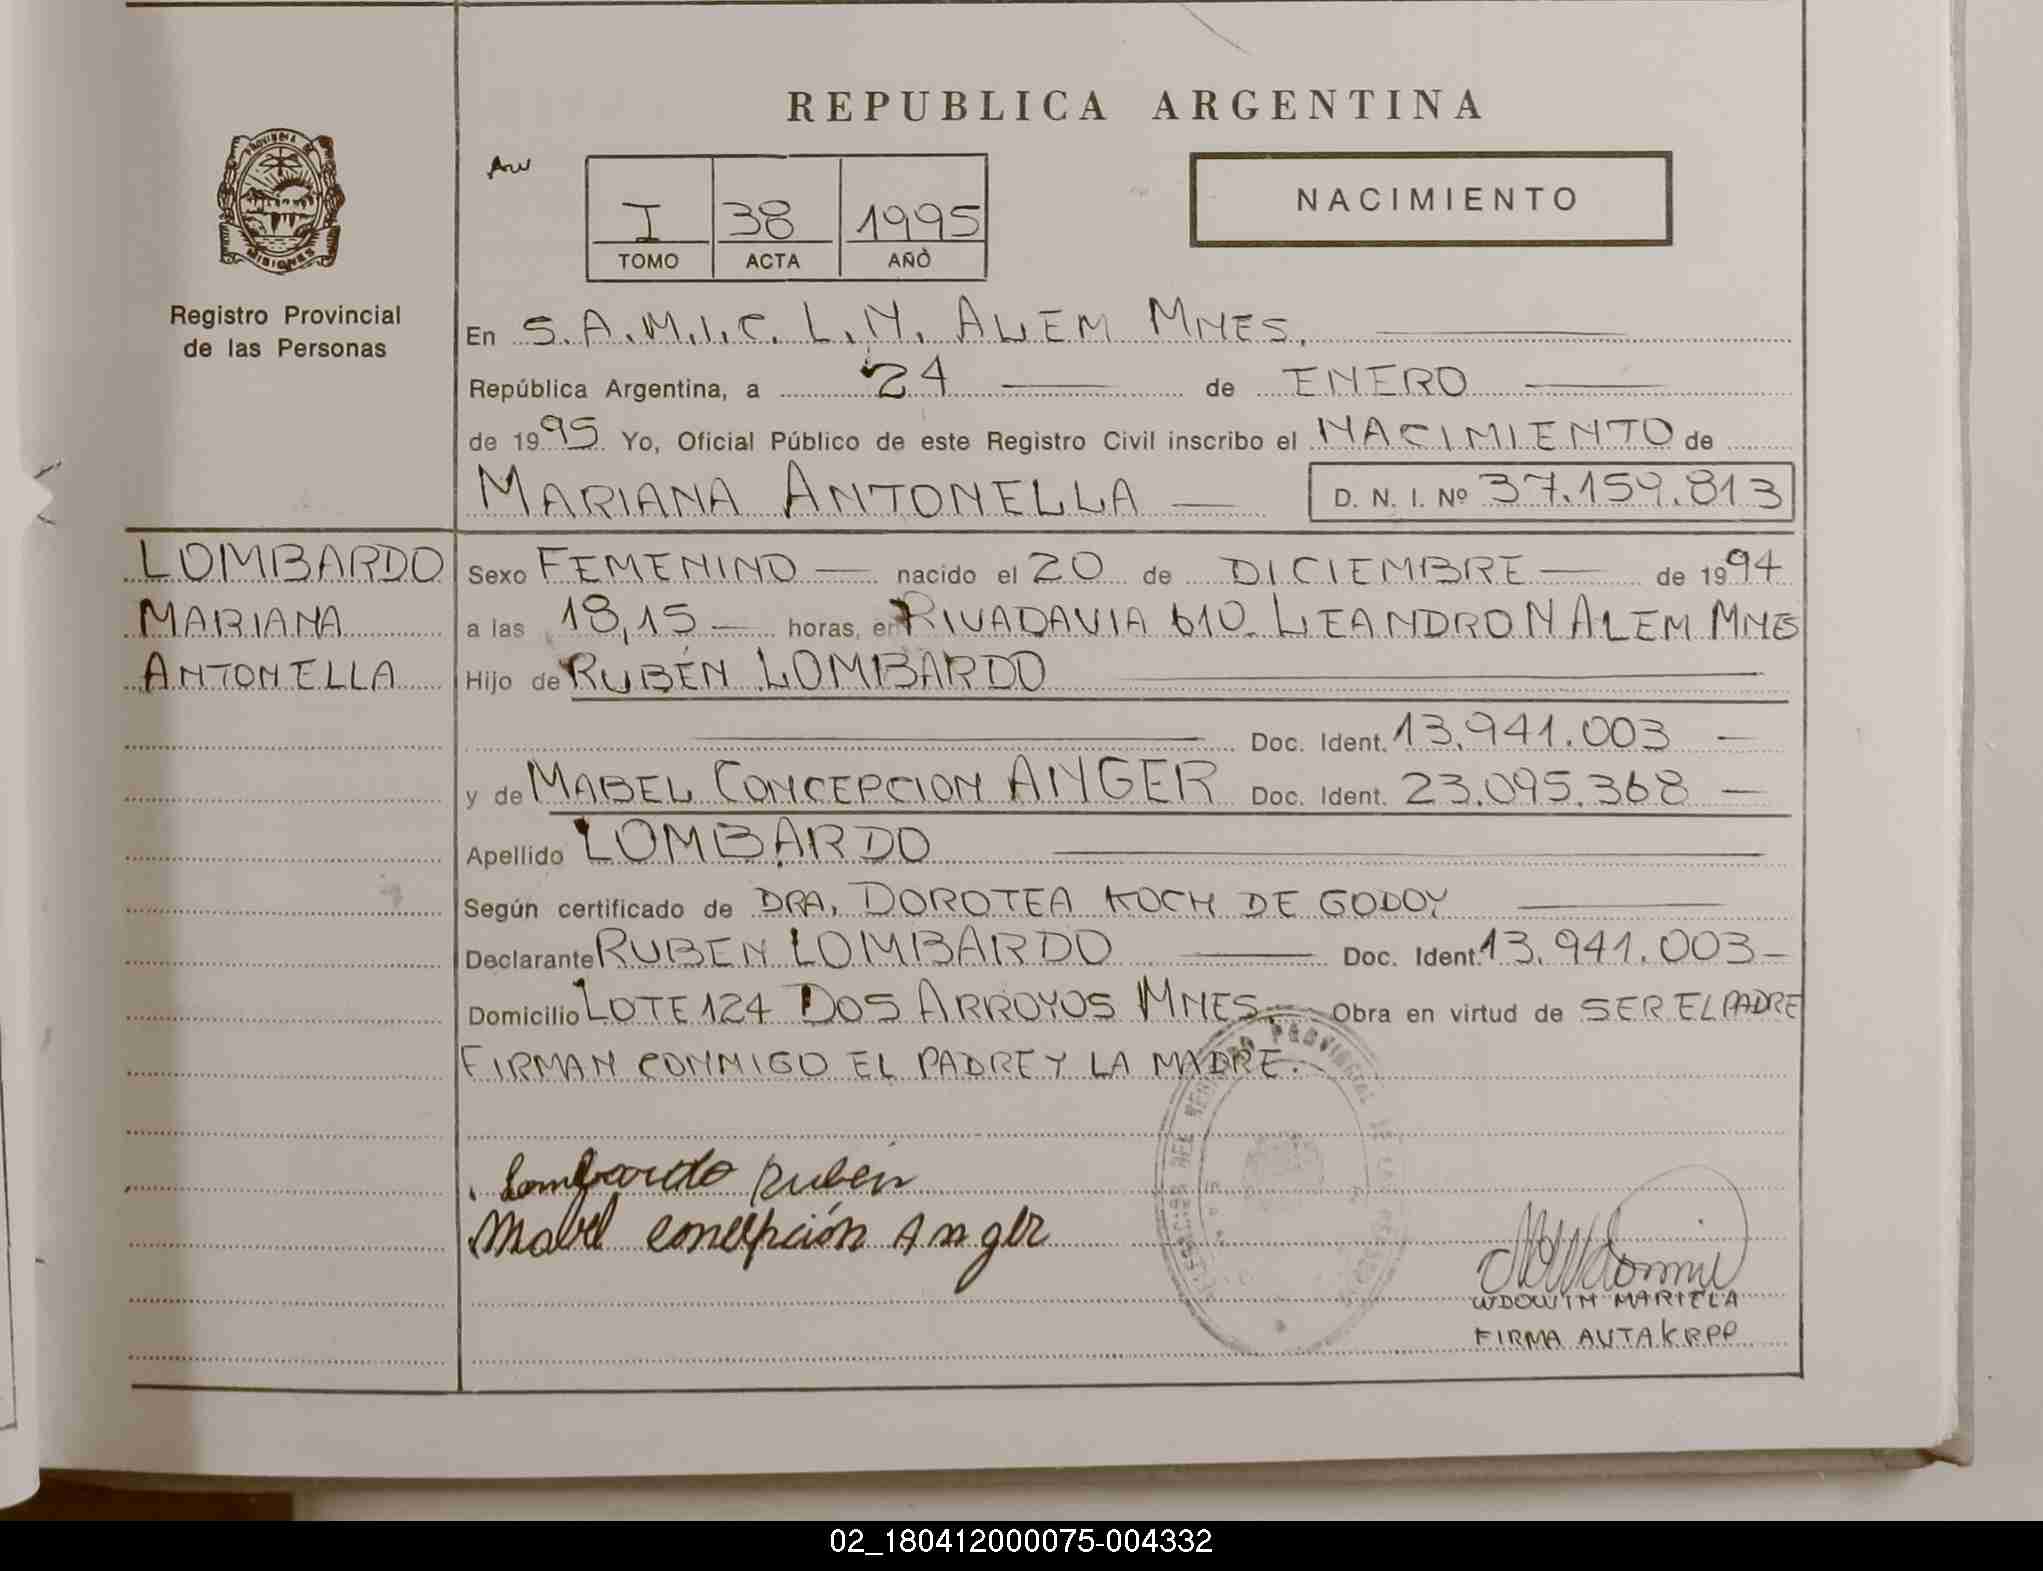 REPUBLICA ARGENTINA
PROVINCIA DE
MISIONES
Registro Provincial
de las Personas
I 38 1995
TOMO ACTA AÑO
NACIMIENTO
En S.A.M.I.C. L.N. ALEM MNES.
República Argentina, a 24 de ENERO
de 1995 Yo, Oficial Público de este Registro Civil inscribo el NACIMIENTO de
MARIANA ANTONELLA D. N. I. Nº 37.159.813
LOMBARDO
MARIANA
ANTONELLA
Sexo FEMENINO nacido el 20 de DICIEMBRE de 1994
a las 18,15 horas, en RIVADAVIA 610 LEANDRO N ALEM MNES
Hijo de RUBÉN LOMBARDO
Doc. Ident. 13.941.003
y de MABEL CONCEPCION ANGER Doc. Ident. 23.095.368
Apellido LOMBARDO
Según certificado de DRA. DOROTEA KOCH DE GODOY
Declarante RUBEN LOMBARDO Doc. Ident. 13.941.003
Domicilio LOTE 124 DOS ARROYOS MNES. Obra en virtud de SER EL PADRE
FIRMAN CONMIGO EL PADRE Y LA MADRE.
Lombardo Rubén
Mabel Concepción Anger
WDOWIN MARIELA
FIRMA AUTAKRPP
02_180412000075-004332